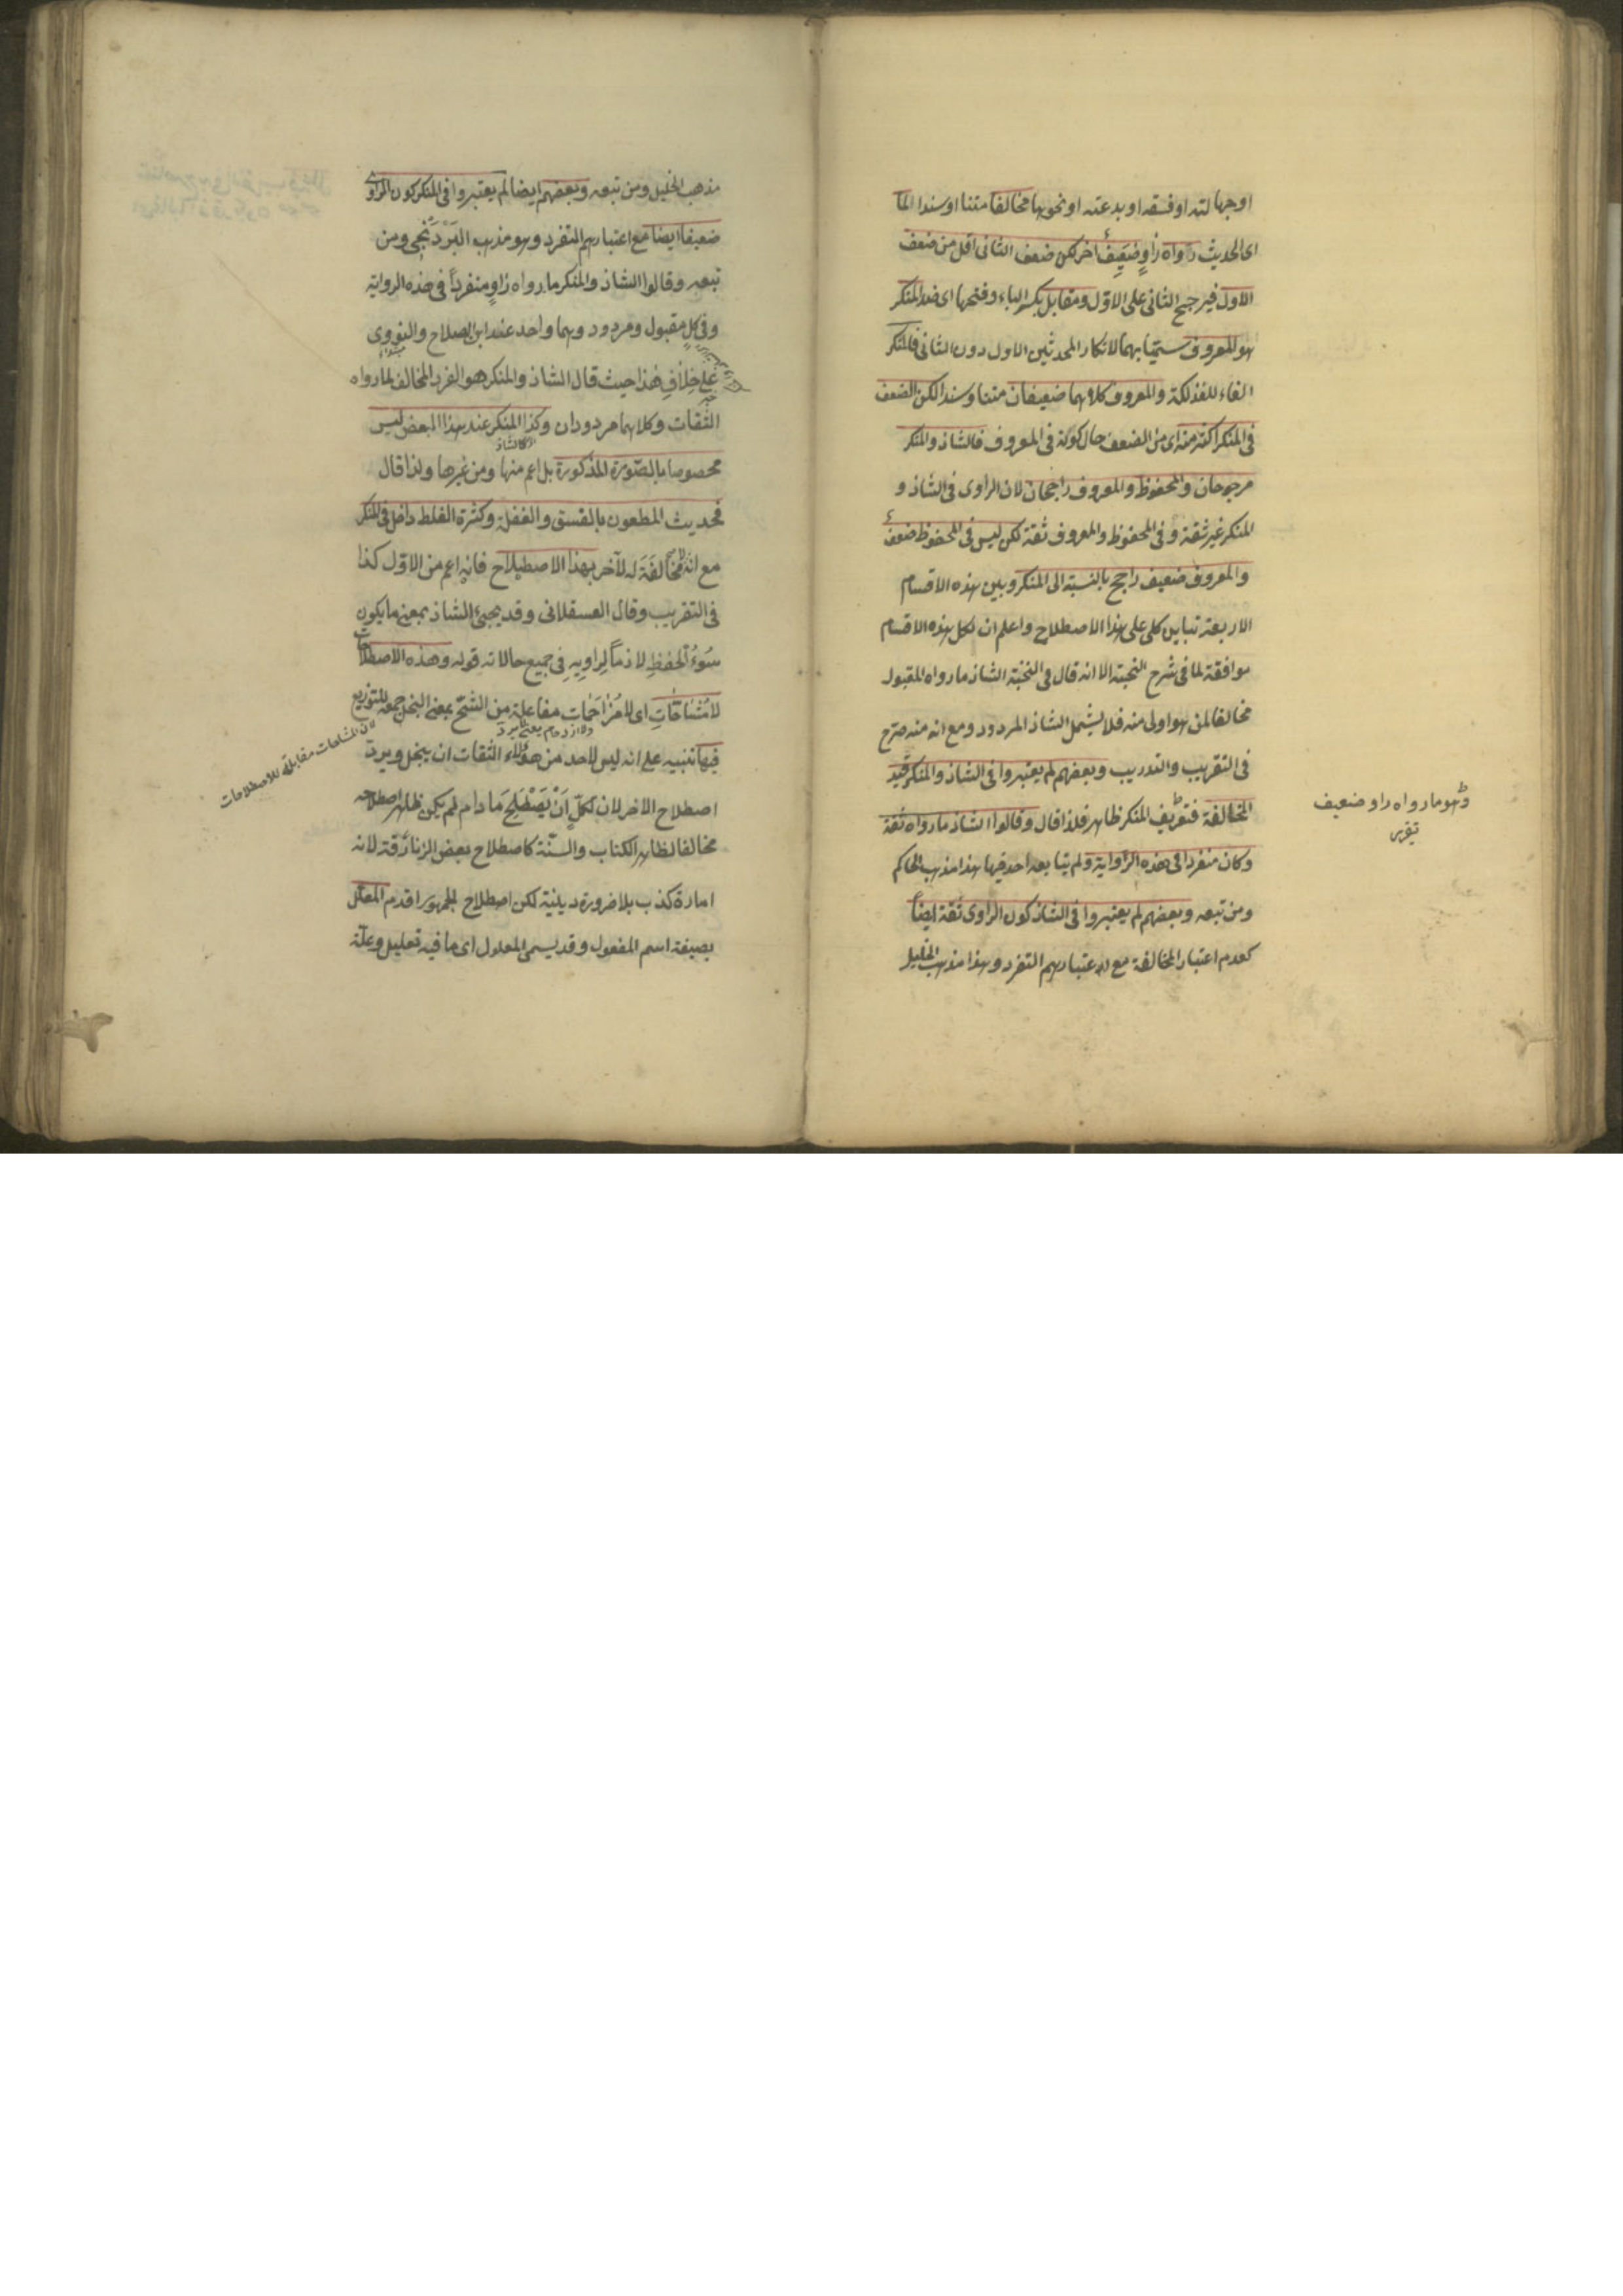 او جهالته او فسقه او بدعته او نحوها مخالفا متنا او سندا لما
اى الحديث رواه راوٍ ضعيف اخر لكن ضعف الثانى اقل من ضعف
الاول فيرجح الثانى على الاول ومقابل بكسر الباء وفتحها اى ضد المنكر
هو المعروف سميا بهما لانكار المحدثين الاول دون الثانى فالمنكر
الفاء للفذلكة والمعروف كلاهما ضعيفان متنا وسندا لكن الضعف
فى المنكر اكثر منه اى من الضعف حال كونه فى المعروف فالشاذ والمنكر
مرجوحان والمحفوظ والمعروف راجحان لان الراوى فى الشاذ و
المنكر غير ثقة وفى المحفوظ والمعروف ثقة لكن ليس فى المحفوظ ضعف
والمعروف ضعيف راجح بالنسبة الى المنكر وبين هذه الاقسام
الاربعة تباين كلى على هذا الاصطلاح واعلم ان لكل هذه الاقسام
موافقة لما فى شرح النخبة الا انه قال فى النخبة الشاذ ما رواه المقبول
مخالفا لمن هو اولى منه فلا يشمل الشاذ المردود ومع انه منه صرح
فى التقريب والتدريب وبعضهم لم يعتبروا فى الشاذ والمنكر قيد
المخالفة فتعريف المنكر ظاهر فلذا قال وقالوا الشاذ ما رواه ثقة
وهو ما رواه راو ضعيف
وكان منفردا فى هذه الرواية ولم يتابعه احد فيها هذا مذهب الحاكم
ومن تبعه وبعضهم لم يعتبروا فى الشاذ كون الراوى ثقة ايضاً
كعدم اعتبار المخالفة مع اعتبارهم التفرد وهذا مذهب الخليل
مذهب الخليل ومن تبعه وبعضهم ايضا لم يعتبروا فى المنكر كون الراوى
ضعيفا ايضا مع اعتبارهم التفرد وهو مذهب البَرْدَنْجِى ومن
تبعه وقالوا الشاذ والمنكر ما رواه راوٍ منفرداً فى هذه الرواية
وفى كلٍ مقبول ومردود وهما واحد عند ابن الصلاح والنووى
على خلافِ هذا حيث قال الشاذ والمنكر هو الفرد المخالف لما رواه
الثقات وكلاهما مردودان وكذا المنكر عند هذا البعض ليس
كالشاذ
مخصوصا بالصورة المذكورة بل اعم منها ومن غيرها ولذا قال
فحديث المطعون بالفسق والغفلة وكثرة الغلط داخل فى المنكر
مع انه لا مخالفَةَ له لآخر بهذا الاصطلاح فانه اعم من الاوّل كذا
فى التقريب وقال العسقلانى وقد يجيئ الشاذ بمعنى ما يكون
سُوءُ الحفظِ لازماً لراويه فى جميع حالاته قوله وهذه الاصطلاحات
لا مُشاحّاتِ اى لا مُزاحَمات مفاعلة من الشحّ بمعنى البخل جمعه للتوزيع
لان المشاحات مقابلة للاصطلاحات
فيها تنبيه على انه ليس لاحد من هؤلاء الثقات ان يبخل ويردّ
اصطلاح الاخر لان لكلٍ اَنْ يَصْطَلِحَ ما دام لم يكن ظاهر اصطلاحه
مخالفا لظاهر الكتاب والسنّة كاصطلاح بعض الزنادقة لانه
امارة كذب بلا ضرورة دينية لكن اصطلاح الجمهور اقدم المعلّل
بصيغة اسم المفعول وقد يسمى المعلول اى ما فيه تعليل وعلّة